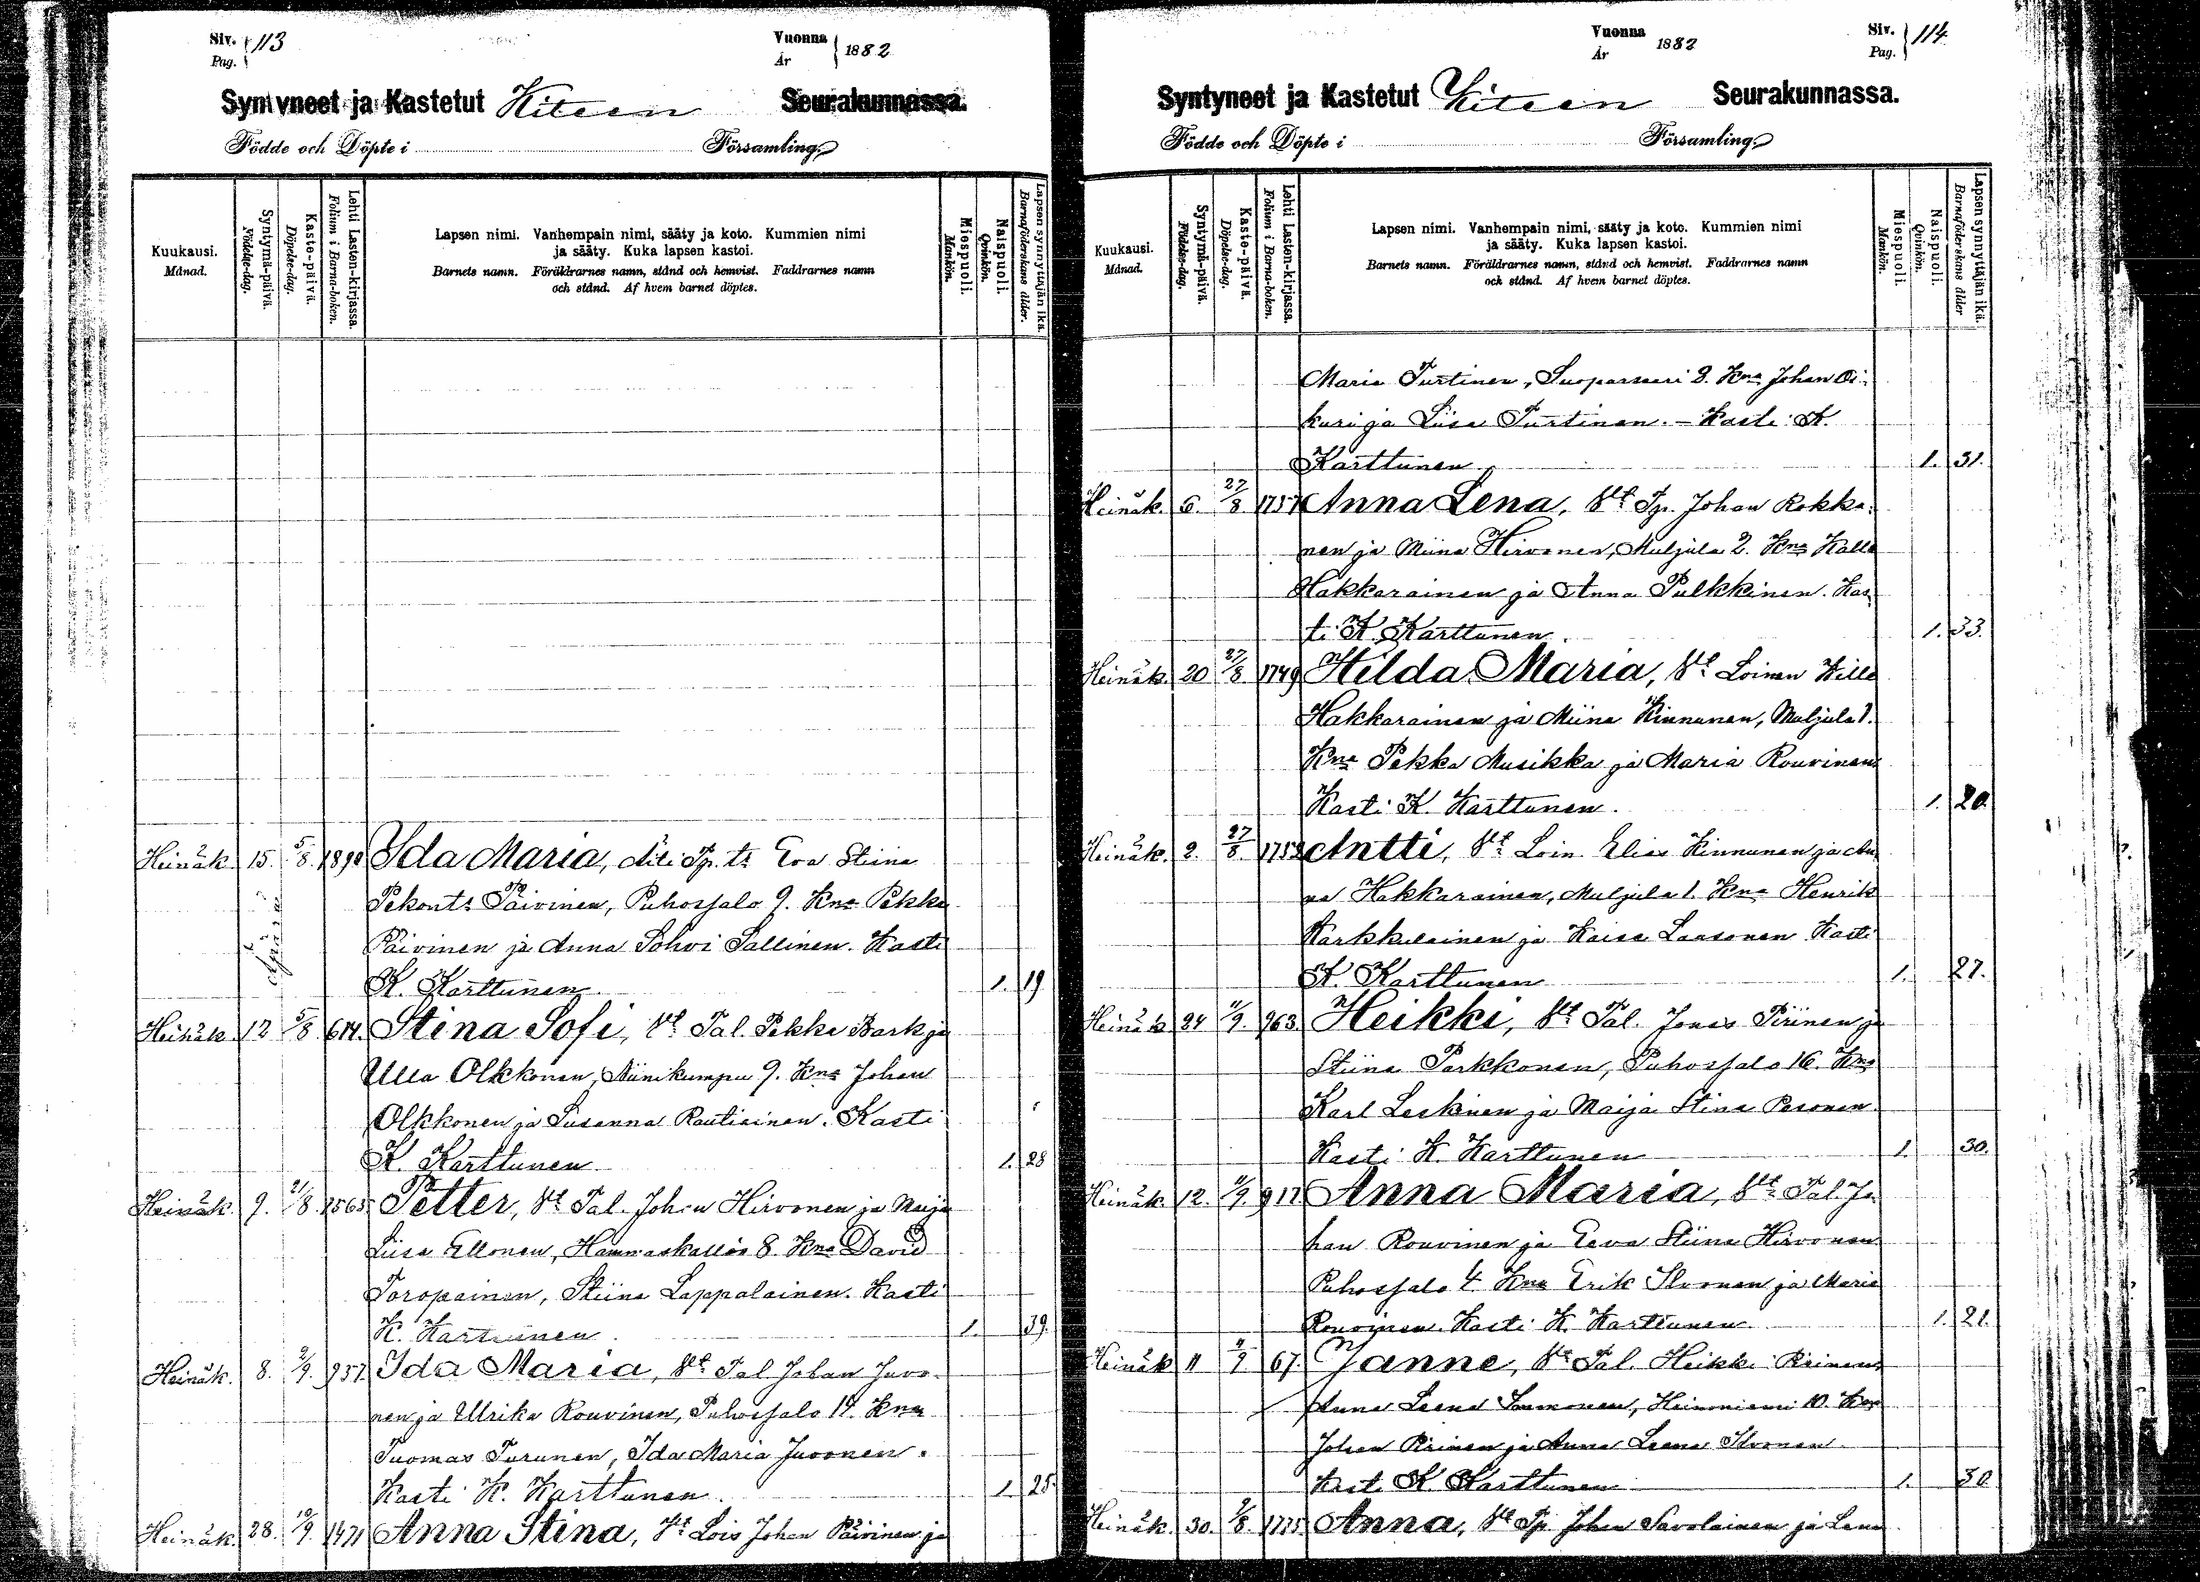 Siv. 113
Pag.
Vuonna 1882
År
Syntyneet ja Kastetut Kiteen Seurakunnassa.
Födde och Döpte i Församling.
Kuukausi.
Månad.
Syntymä-päivä.
Födelse-dag.
Kaste-päivä.
Döpelse-dag.
Lehti Lasten-kirjassa.
Folium i Barna-boken.
Lapsen nimi. Vanhempain nimi, sääty ja koto. Kummien nimi
ja sääty. Kuka lapsen kastoi.
Barnets namn. Föräldrarnes namn, stånd och hemvist. Faddrarnes namn
och stånd. Af hvem barnet döptes.
Miespuoli.
Mankön.
Naispuoli.
Qvinkön.
Lapsen synnyttäjän ikä.
Barnaföderskans ålder.
Heinäk. 15. 5/8. 1890 Ida Maria, äiti Tp. tr Eva Stiina
Päivinen, Puhossalo 9. Kna Pekka
Päivinen ja Anna Sohvi Sallinen. Kasti
K. Karttunen. 1. 19
Heinäk. 12 5/8 614. Stina Sofi, Vt Tal. Pekka Bark ja
Ulla Olkkonen, Niinikumpu 9. Kna Johan
Olkkonen ja Susanna Rautiainen. Kasti
K. Karttunen 1. 28
Heinäk. 9. 21/8. 1565. Petter, Vt Tal. Johan Hirvonen ja Maija
Liisa Ellonen, Hammaskallio 8. Kna David
Toropainen, Stiina Lappalainen. Kasti
K. Karttunen. 1. 39.
Heinäk. 8. 2/9. 957. Ida Maria, Vt Tal Johan Juvo-
nen ja Ulrika Rouvinen, Puhossalo 14. Kna
Tuomas Turunen, Ida Maria Juvonen.
Kasti K. Karttunen. 1. 25.
Heinäk. 28. 10/9. 1471 Anna Stina, Vt Lois Johan Päivinen ja
Vuonna 1882
År
Siv. 114
Pag.
Syntyneet ja Kastetut Kiteen Seurakunnassa.
Födde och Döpte i Församling.
Kuukausi.
Månad.
Syntymä-päivä.
Födelse-dag.
Kaste-päivä.
Döpelse-dag.
Lehti Lasten-kirjassa.
Folium i Barna-boken.
Lapsen nimi. Vanhempain nimi, sääty ja koto. Kummien nimi
ja sääty. Kuka lapsen kastoi.
Barnets namn. Föräldrarnes namn, stånd och hemvist. Faddrarnes namn
och stånd. Af hvem barnet döptes.
Miespuoli.
Mankön.
Naispuoli.
Qvinkön.
Lapsen synnyttäjän ikä.
Barnaföderskans ålder
Maria Turtinen, Suoparsaari 8. Kna Johan Oi-
kuri ja Liisa Turtinen. – Kasti K.
Karttunen. 1. 31.
Heinäk. 6. 27/8. 1757 Anna Lena, Vt Tp. Johan Rokka-
nen ja Miina Hirvonen, Muljula 2. Kna Kalle
Hakkarainen ja Anna Pulkkinen. Kas-
ti K. Karttunen. 1. 33.
Heinäk. 20 27/8 1749 Hilda Maria, Vt Loinen Wille
Hakkarainen ja Miina Kinnunen, Muljula 1.
Kna Pekka Musikka ja Maria Rouvinen
Kasti K. Karttunen. 1. 20.
Heinäk. 2. 27/8. 1752 Antti, Vt Loin. Elias Kinnunen ja An-
na Hakkarainen, Muljula 1. Kna Henrik
Karkkulainen ja Kaisa Laasonen. Kasti
K. Karttunen 1. 27.
Heinäk 24 11/9. 963. Heikki, Vt Tal. Jonas Pirinen ja
Stiina Parkkonen, Puhossalo 16. Kna
Karl Leskinen ja Maija Stina Pesonen.
Kasti K. Karttunen 1. 30.
Heinäk. 12. 11/9. 917 Anna Maria, Vt Tal. Jo-
han Rouvinen ja Eeva Stiina Hirvonen
Puhossalo 4 Kna Erik Ilvonen ja Maria
Rouvinen. Kasti K. Karttunen. 1. 21.
Heinäk 11 11/9 67. Janne, Vt Tal. Heikki Pirinen
Anna Leena Immonen, Heinoniemi 10. Kna
Johan Pirinen ja Anna Leena Ilvonen
Kast. K. Karttunen 1. 30.
Heinäk. 30. 7/8. 1775 Anna, Vt Tp. Johan Savolainen ja Lena